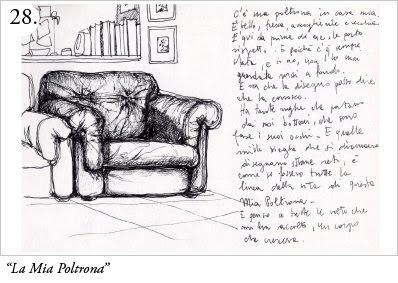 28.
C'è una poltrona in casa mia
È bella, fiera, accogliente e vecchia
È qui da prima di me, le porto
rispetto. E poiché c'è sempre
stata, e io no, non l'ho mai
guardata fino a fondo.
E ora che la disegno potrò dire
che la conosco.
Ha tante rughe che partono
dai suoi bottoni, che sono
forse i suoi occhi. E quelle
mille pieghe che si diramano
disegnano strane reti, è
come se fossero tutte le
linee della vita di questa
Mia Poltrona.
E penso a tutte le volte che
mi ha accolto, un corpo
che cresceva.
“La Mia Poltrona”